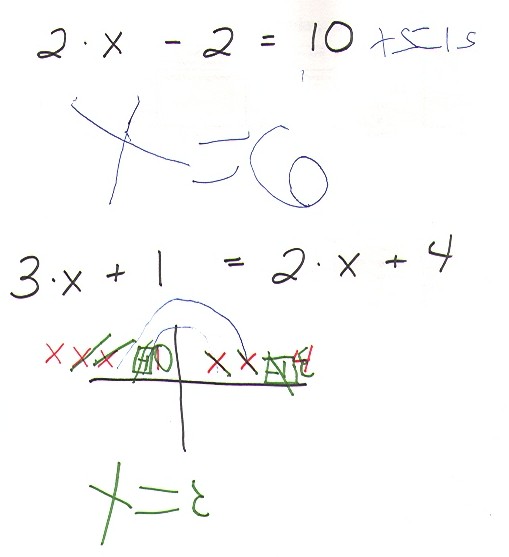 2 · x - 2 = 10
x = 6
3 · x + 1 = 2 · x + 4
x x x x x
x = 3